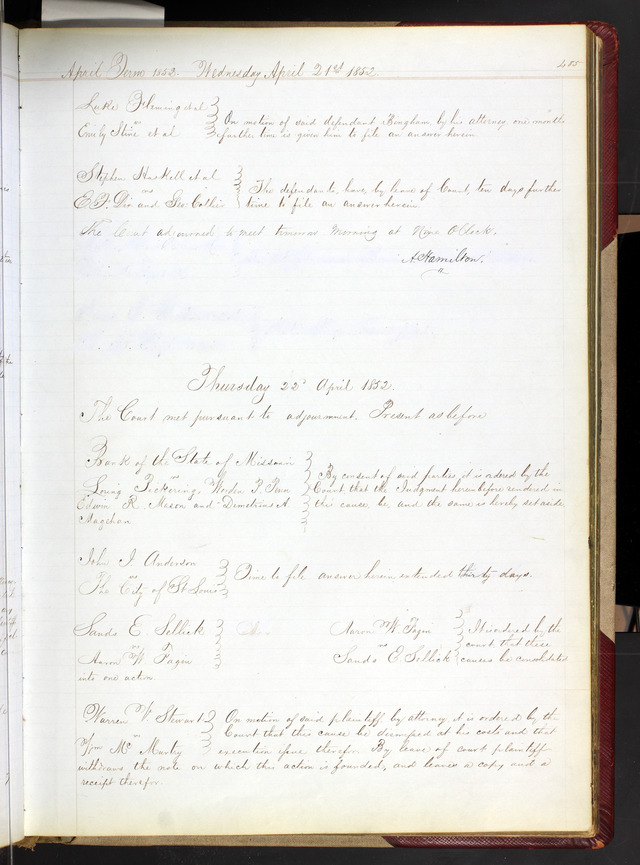 April Term 1852. Wednesday April 21st 1852. 455
Luke Fleming et al
vs
Emily Stine et al
On motion of said defendant Bingham, by his attorney one months
further time is given him to file an answer herein
Stephen Haskell et al
vs
E. F. Dix and Geo: Collier
The defendants, have, by leave of Court, ten days further
time to file an answer herein
The Court adjourned to meet tomorrow morning at Nine O'Clock.
A. Hamilton.
Thursday 22d April 1852.
The Court met pursuant to adjournment. Present as before
Bank of the State of Missouri
vs
Loring Pickering, Worden P. Penn
Edwin R. Mason and Demetrius A.
Magehan
By consent of said parties it is ordered by the
Court that the Judgment hereinbefore rendered in
this cause, be, and the same is hereby set aside
John J Anderson
vs
The City of St Louis
Time to file answer herein extended thirty days.
Sands E. Sellick
vs
Aaron W. Fagin
Aaron W. Fagin
vs
Sands E. Sellick
It is ordered by the
court that these
causes be consolidated
into one action.
Warren V Stewart
vs
Wm McMurty
On motion of said plaintiff by attorney it is ordered by the
Court that this cause be dismissed at his costs and that
execution issue therefor. By leave of court plaintiff
withdraws the note on which this action is founded, and leaves a copy and a
receipt therefor.